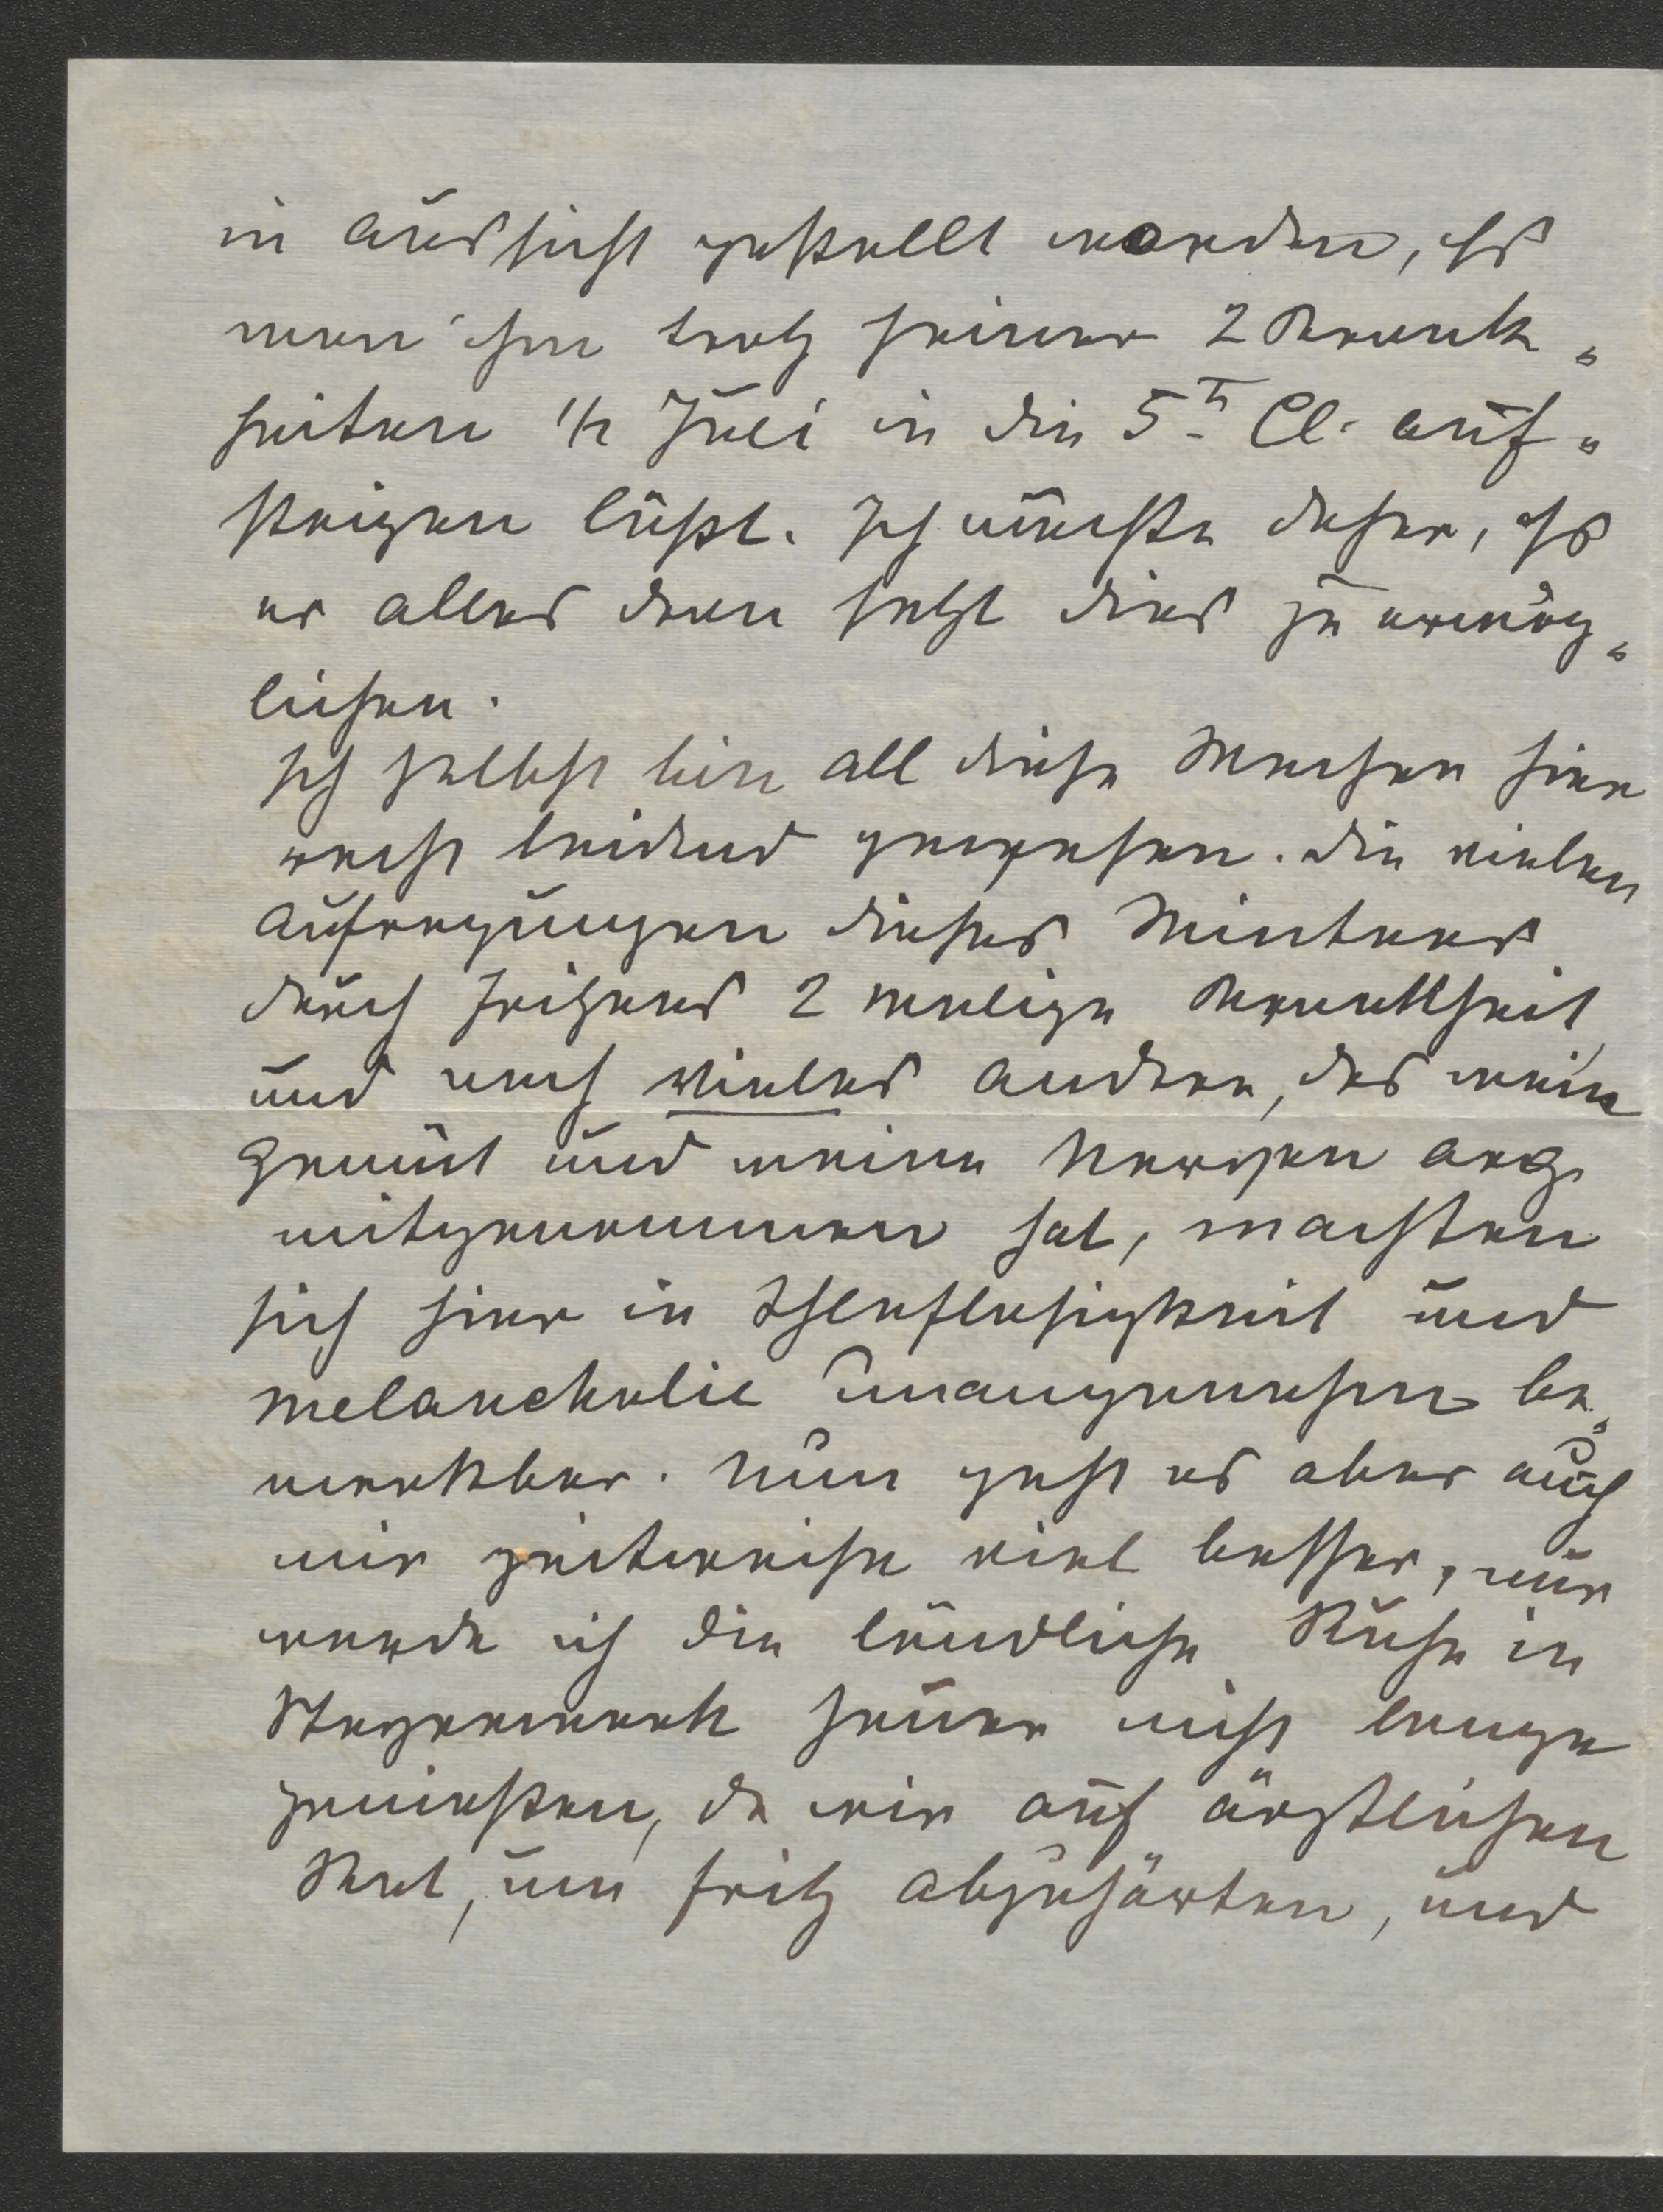 in Aussicht gestellt worden, dß
man ihn trotz seiner 2 Krank„
heiten 1/7 Juli in die 5te Cl. auf„
steigen läßt. Ich möchte daher, dß
er alles dran setzt dies zu ermög„
lichen.
Ich selbst bin all diese Wochen hier
recht leidend gewesen. Die vielen
Aufregungen dieses Winters
durch Fritzens 2 malige Krankheit
und noch vieles andere, das mein
Gemüt und meine Nerven arg
mitgenommen hat, machten
sich hier in Schlaflosigkeit und
Melancholie unangenehm be„
merkbar. Nun geht es aber auch
mir zeitweise viel besser, nur
werde ich die ländliche Ruhe in
Steyermark heuer nicht lange
genießen, da wir auf ärztlichen
Rat, um Fritz abzuhärten, und